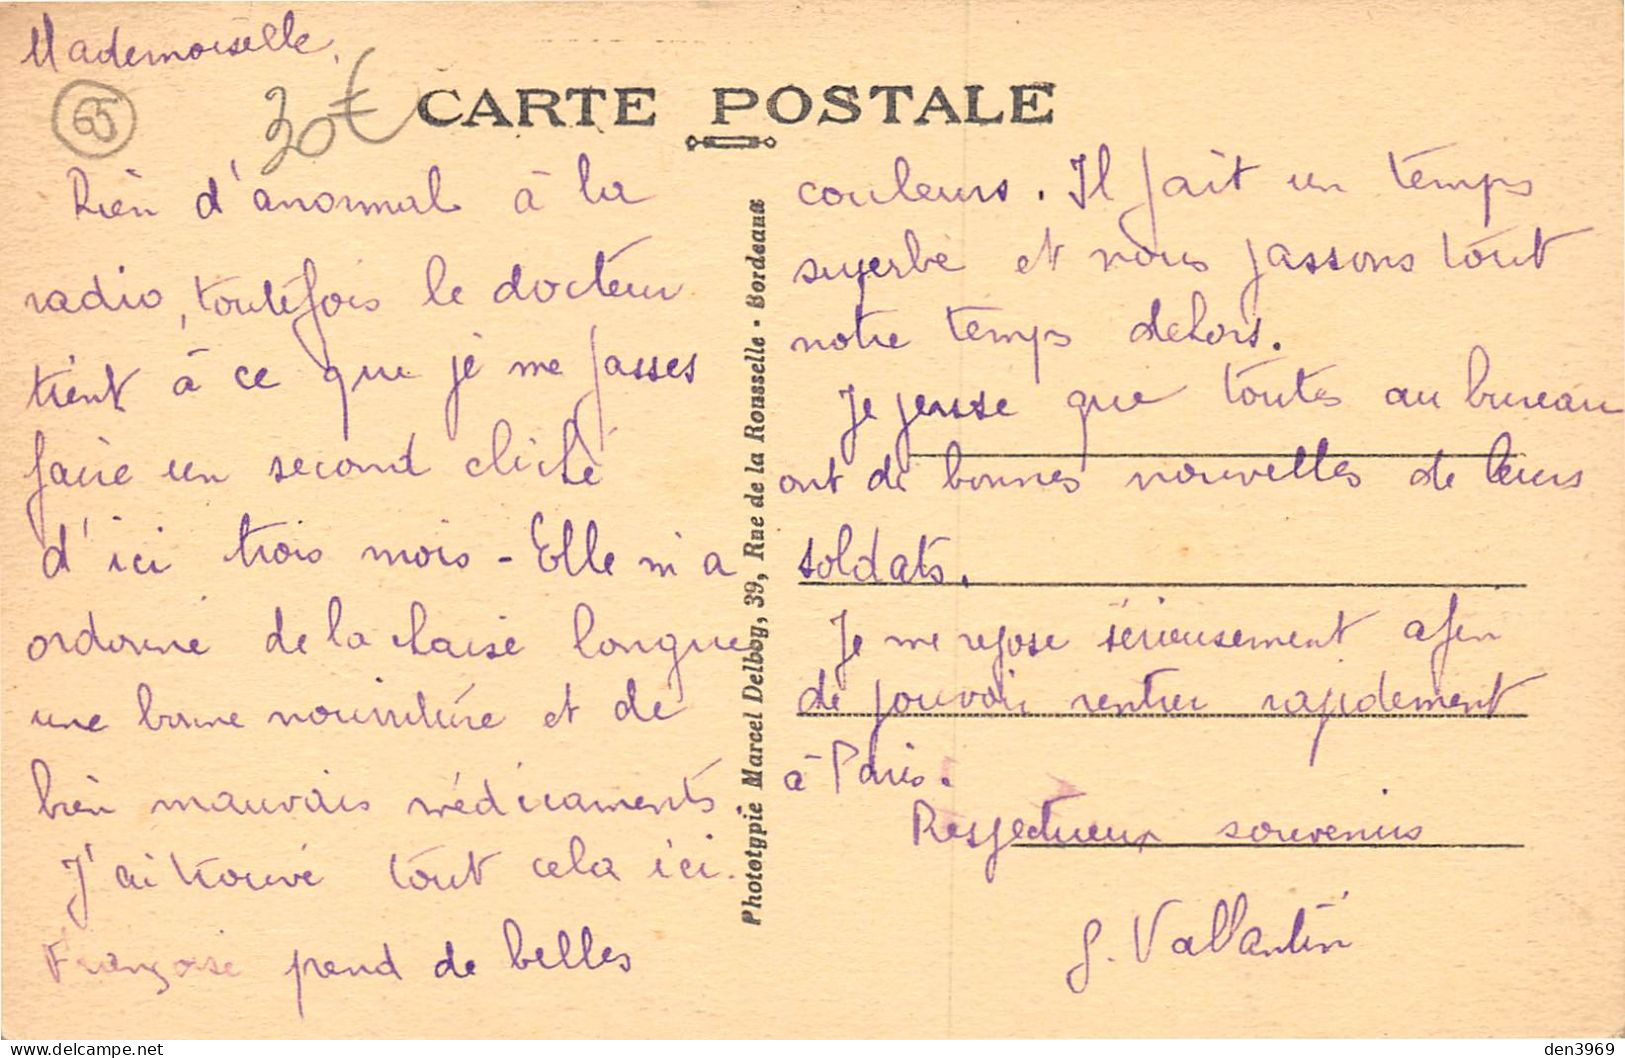 Mademoiselle,
65
30€
CARTE POSTALE
Rien d'anormal à la
radio, toutefois le docteur
tient à ce que je me passes
faire un second cliché
d'ici trois mois - Elle m'a
ordonné de la chaise longue
une bonne nourriture et de
bien mauvais médicaments.
J'ai trouvé tout cela ici.
Françoise prend de belles
Phototypie Marcel Delboy, 39, Rue de la Rousselle - Bordeaux
couleurs. Il fait un temps
superbe et nous passons tout
notre temps dehors.
Je pense que toutes au bureau
ont de bonnes nouvelles de leurs
soldats.
Je me repose sérieusement afin
de pouvoir rentrer rapidement
à Paris.
Respectueux souvenirs
G. Vallantin
delcampe.net
den3969